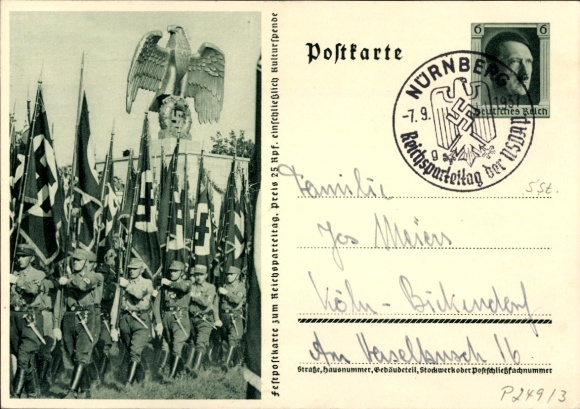 Festpostkarte zum Reichsparteitag. Preis 25 Rpf. einschließlich Kulturspende
Postkarte
6 6
Deutsches Reich
NÜRNBERG
-7.9.
Reichsparteitag der NSDAP
g
5 St.
Familie
Jos Meiers
Köln-Bickendorf
Am 16
Straße, Hausnummer, Gebäudeteil, Stockwerk oder Postschließfachnummer
P249/3